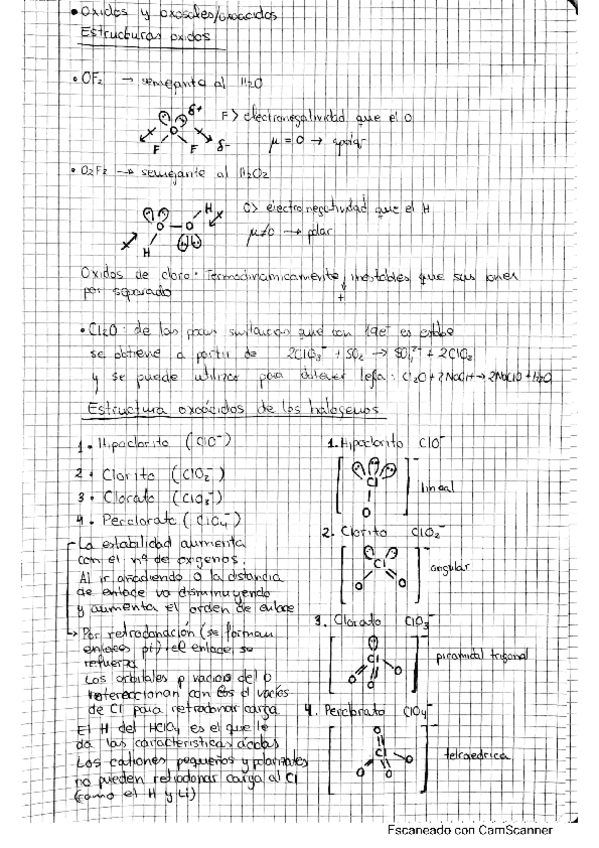 • Oxidos y oxosales/oxoacidos
Estructuras oxidos
• OF2 → semejante al H2O
δ+
O
F F δ-
F > electronegatividad que el O
μ = 0 →
• O2F2 → semejante al H2O2
O - O
H
H
O > electronegatividad que el H
μ≠0 → polar
Oxidos de cloro: Termodinamicamente + inestables que sus iones
por separado
• Cl2O: de las pocas sustancias que con 19e- es estable
se obtiene a partir de 2ClO3- + SO2 → SO4 2- + 2ClO2
y se puede utilizar para obtener lejía: Cl2O + 2NaOH → 2NaClO + H2O
Estructura oxoácidos de los halogenos
1. Hipoclorito (ClO-)
2. Clorito (ClO2-)
3. Clorato (ClO3-)
4. Perclorato (ClO4-)
La estabilidad aumenta
con el nº de oxigenos.
Al ir añadiendo O la distancia
de enlace va disminuyendo
y aumenta el orden de enlace
↳ Por retrodonación (se forman
enlaces pi) el enlace se
refuerza
Los orbitales p vacios del O
interaccionan con los d vacíos
de Cl para retrodonar carga.
El H del HClO4 es el que le
da las caracteristicas ácidas
Los cationes pequeños y polarizantes
no pueden retrodonar carga al Cl
(como el H y Li)
1. Hipoclorito ClO-
Cl
O
-
lineal
2. Clorito ClO2-
Cl
O O
-
angular
3. Clorato ClO3-
Cl
O O O
-
piramidal trigonal
4. Perclorato ClO4-
O
Cl
O O O
-
tetraedrica
Escaneado con CamScanner